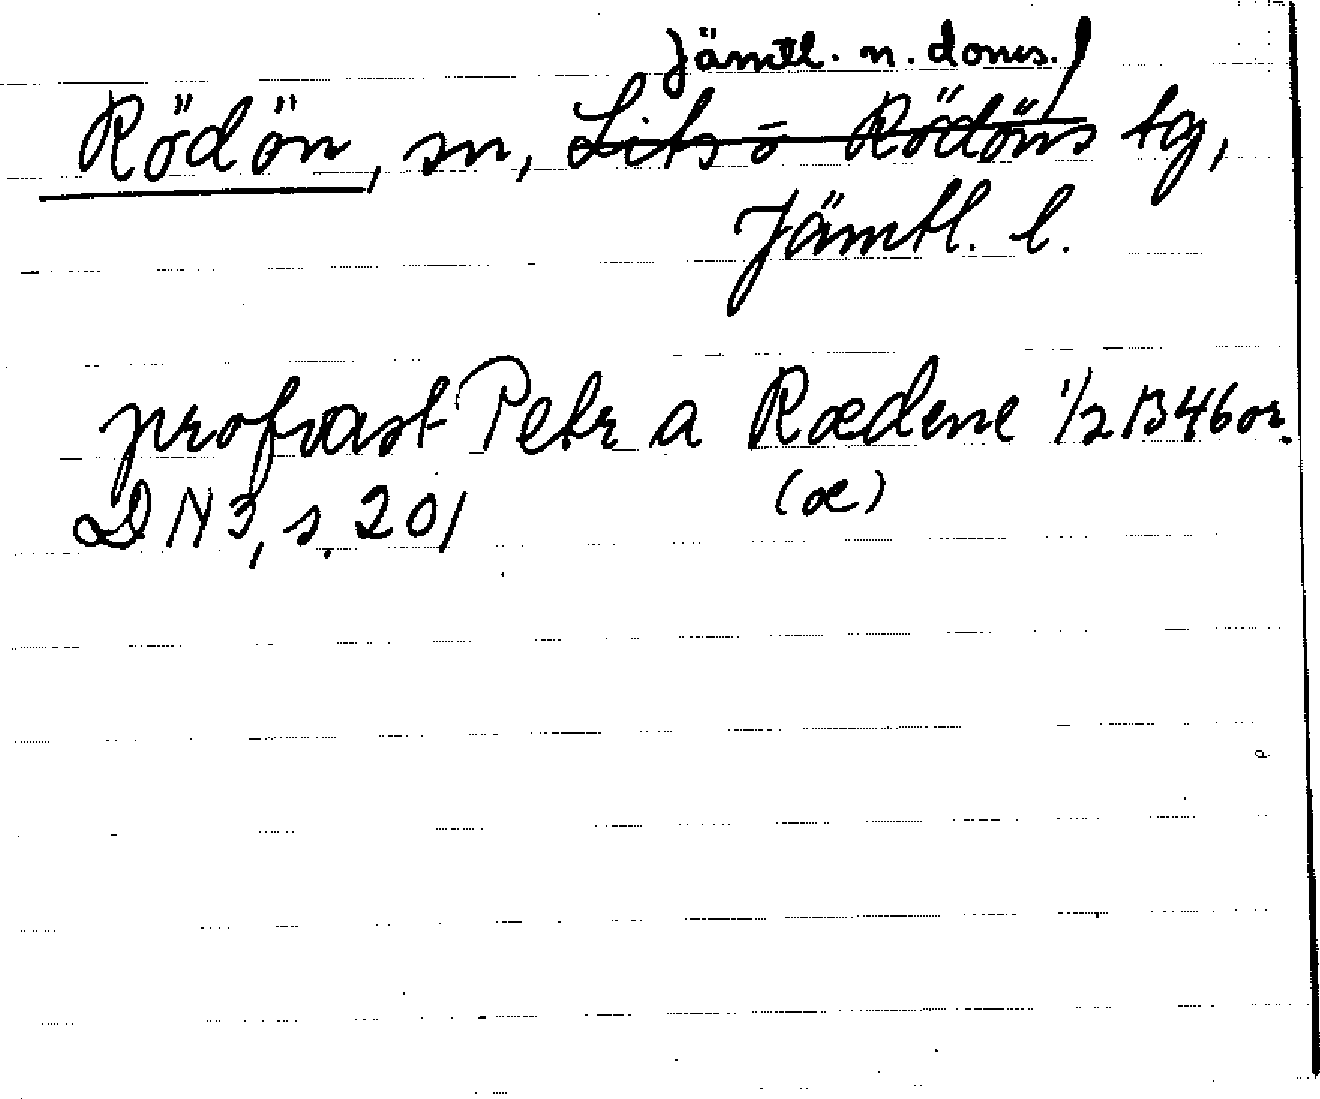 Jämtl. n. doms.
Rödön, sn, Lits o Rödöns tg,
Jämtl. l.
profvast Petr a Rædene 1/2 1346 or.
(æ)
DN 3, s. 201